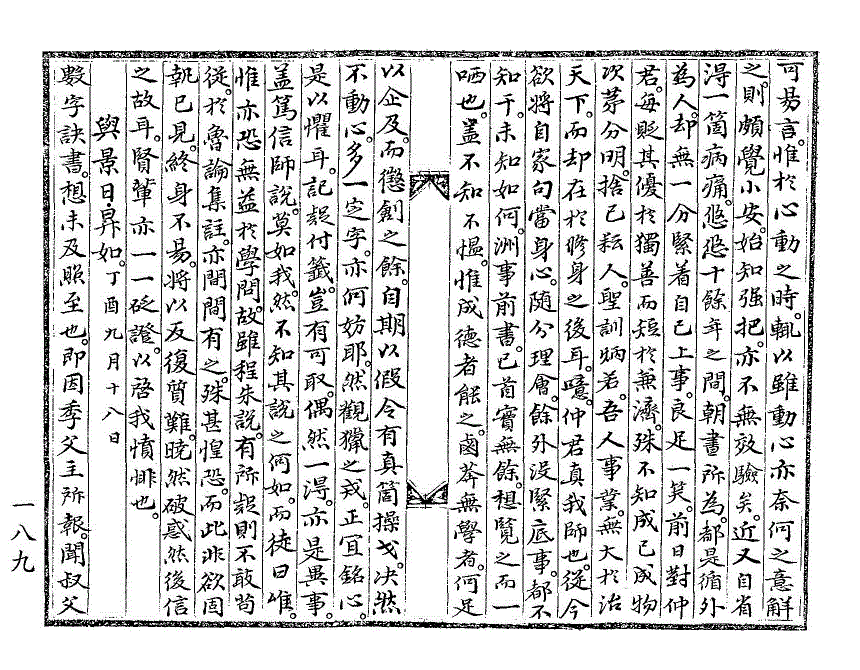 可易言。惟於心動之時。輒以雖動心亦奈何之意解
之。則頗覺小安。始知强把。亦不無效驗矣。近又自省
得一箇病痛。悠悠十餘年之間。朝書所為。都是循外
為人。却無一分緊着自己上事。良足一笑。前日對仲
君。每貶其優於獨善而短於兼濟。殊不知成己成物
次第分明。捨己耘人。聖訓昞若。吾人事業。無大於治
天下。而却在於修身之後耳。噫。仲君真我師也。從今
欲將自家句當身心。隨分理會。餘外沒緊底事。都不
知干。未知如何。洲事前書。已茴實無餘。想覽之而一
哂也。蓋不知不慍。惟成德者能之。鹵莽無學者。何足
以企及。而懲創之餘。自期以假令有真箇操戈。决然
不動心。多一定字。亦何妨耶。然觀獵之戒。正宜銘心。
是以懼耳。記疑付籤。豈有可取。偶然一得。亦是異事。
蓋篤信師說。莫如我。然不知其說之何如。而徒曰唯
唯。亦恐無益於學問。故雖程朱說。有所疑則不敢苟
從。於魯論集註。亦間間有之。殊甚惶恐。而此非欲固
執已見。終身不易。將以反復質難。曉然破惑然後信
之故耳。賢輩亦一一砭證。以啓我憤悱也。
與景日昇如。丁酉九月十八日
數字訣書。想未及照至也。即因季父主所報。聞叔父
一八九